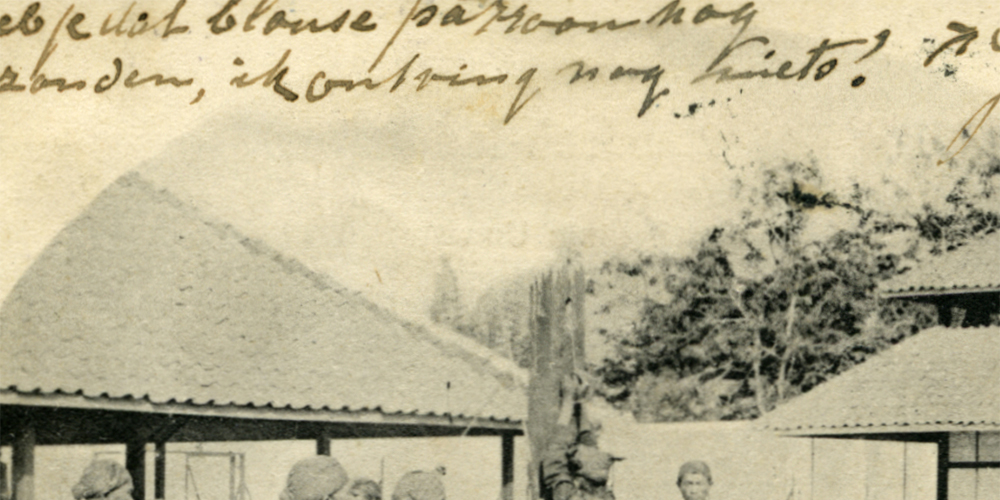 eb je dat blouse patroon nog
zonden, ik ontving nog niets!